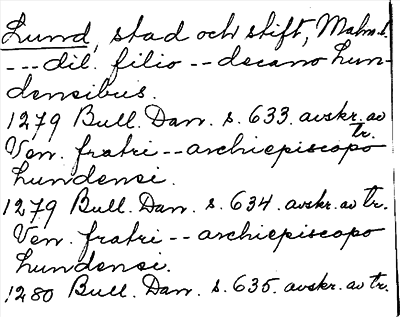 Lund, stad och stift, Malm. l.
--- dil. filio -- decano Lun-
densibus.
1279 Bull. Dan. s. 633. avskr. av
tr.
Ven. fratri -- archiepiscopo
Lundensi.
1279 Bull. Dan. s. 634. avskr. av tr.
Ven. fratri -- archiepiscopo
Lundensi.
1280 Bull. Dan. s. 635. avskr. av tr.